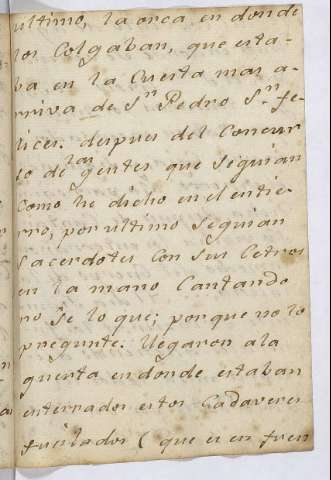 ultimo, la orca en donde
los Colgaban, que esta-
ba en la Cuesta mas a-
rriva de Sn Pedro Sn fe-
lices. despues del Concur
so de las gentes que Seguian
Como he dicho en el entie-
rro, por ultimo Seguian
Sacerdotes Con sus Cetros
en la mano Cantando
no Se lo que; porque no lo
pregunte. llegaron ala
guerta en donde estaban
enterrados estos Cadaveres
fusilados ( que es en fuen